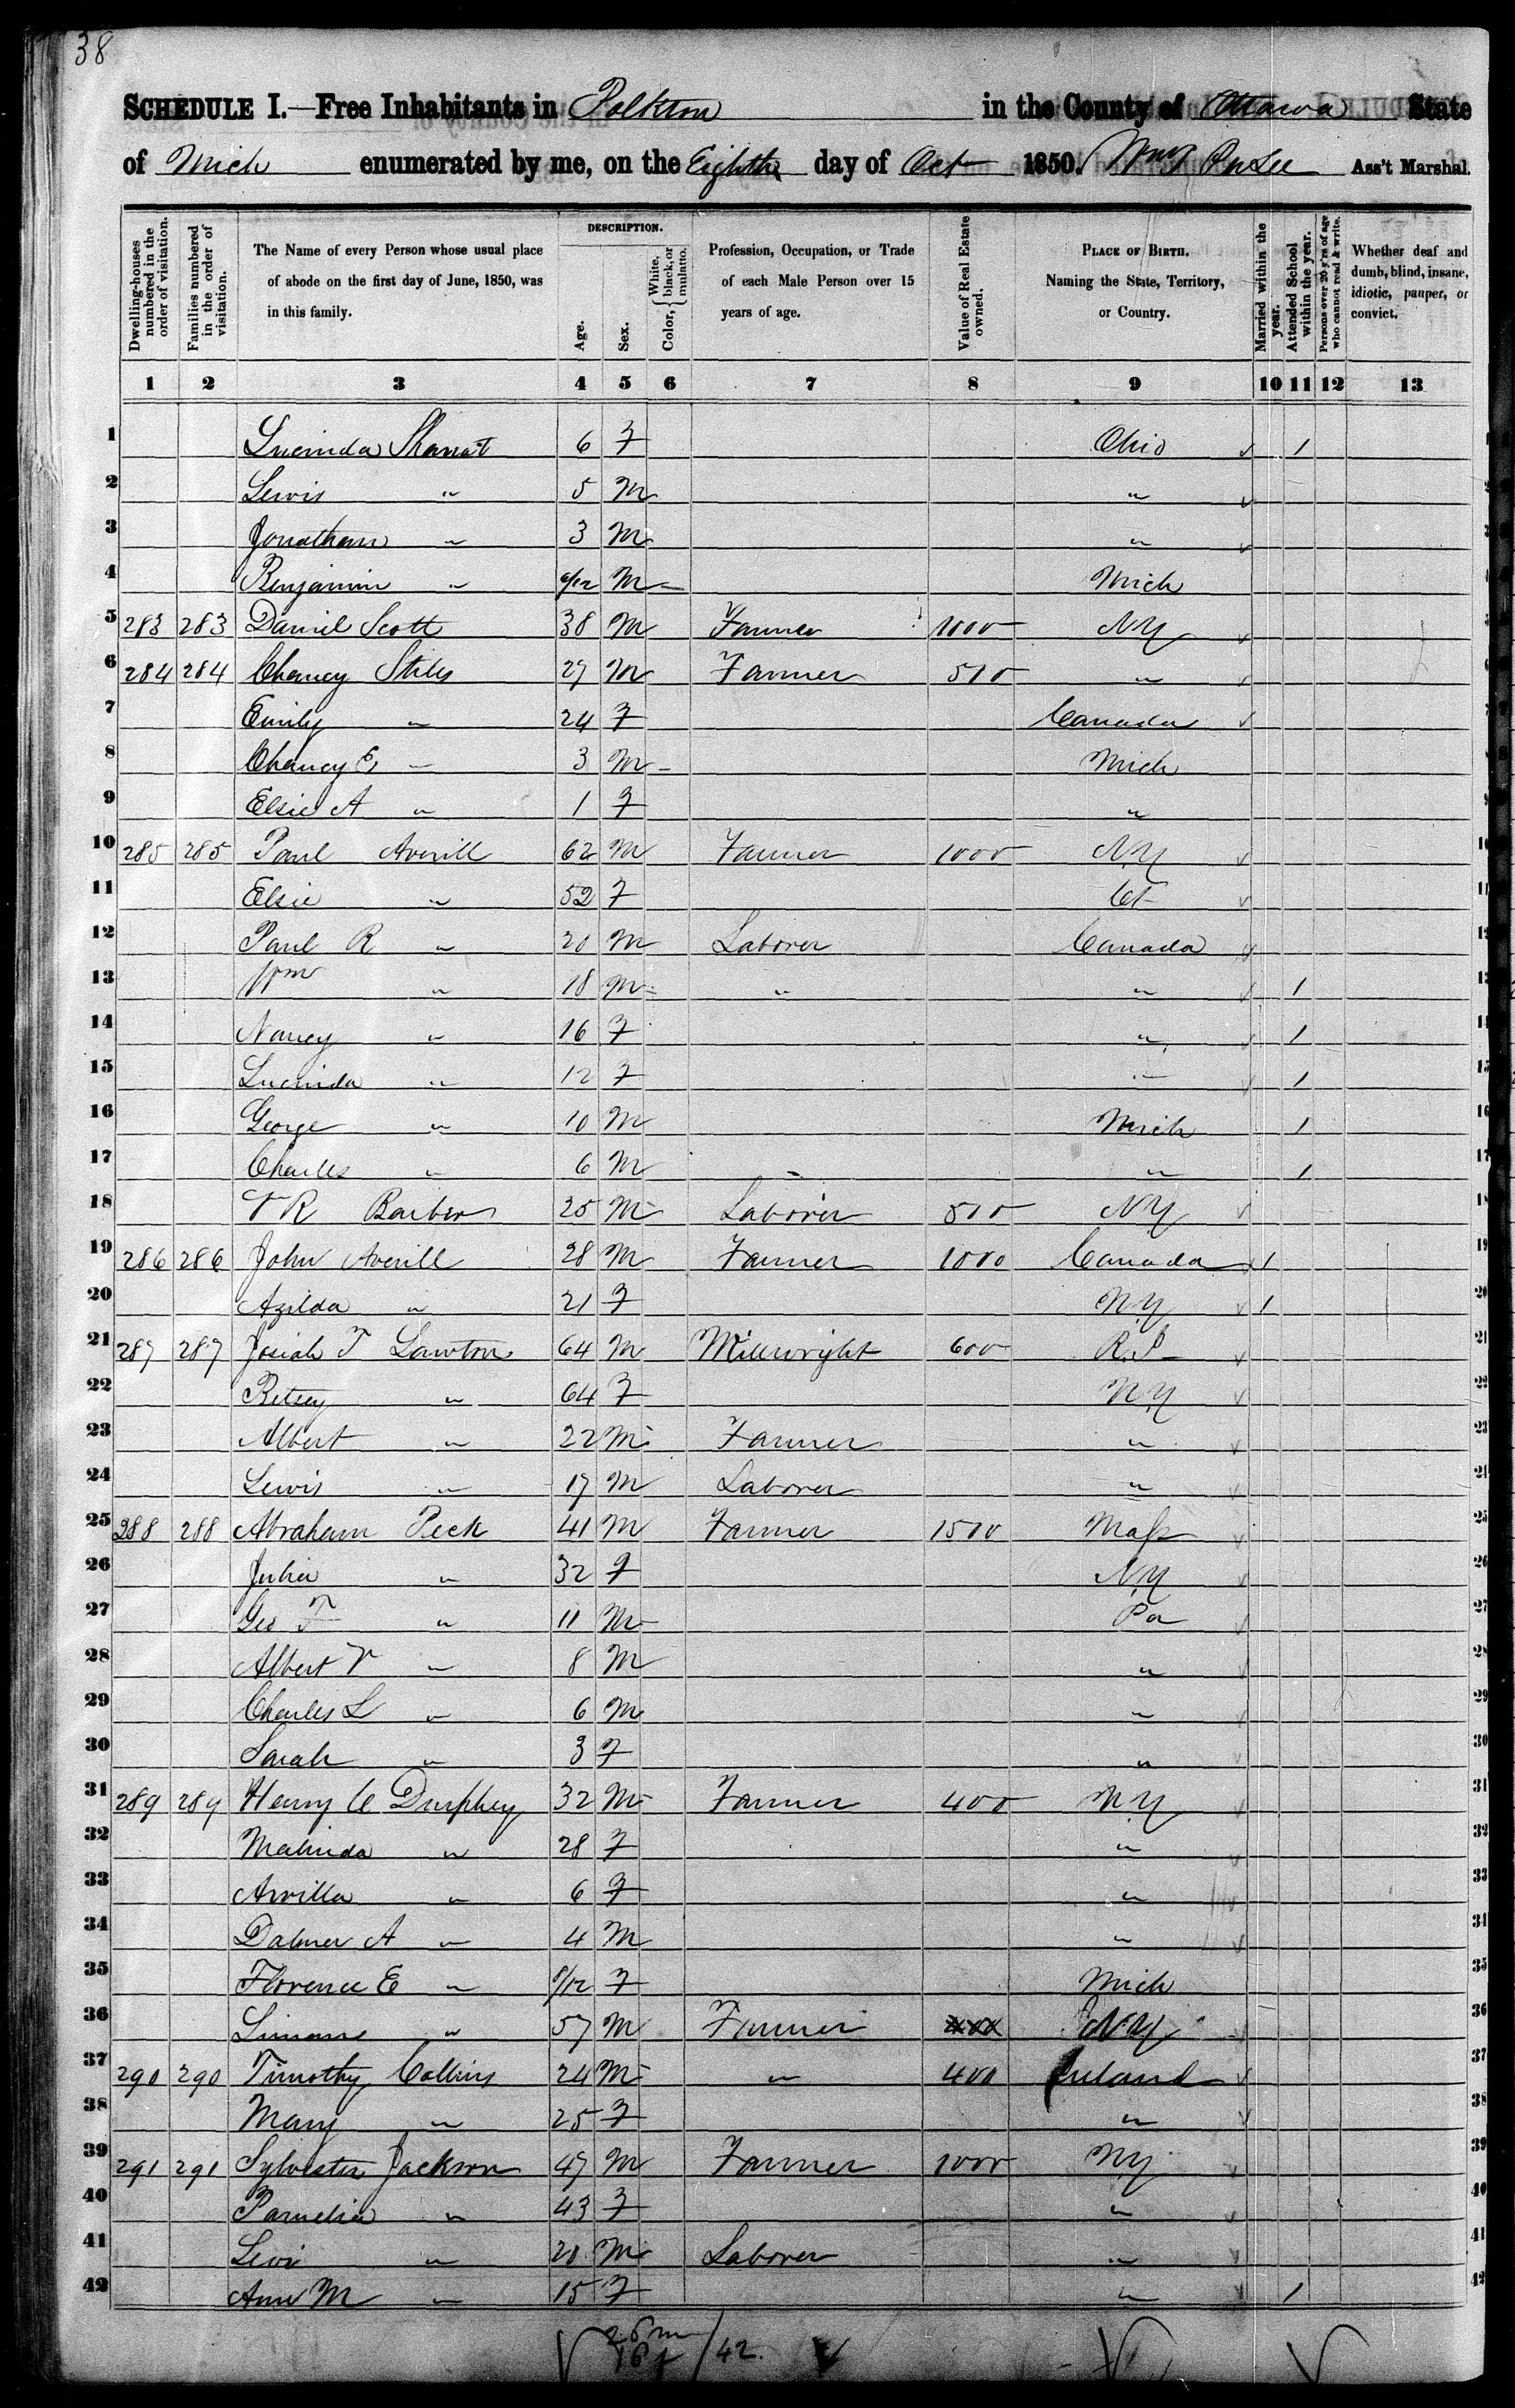 38
SCHEDULE I.—Free Inhabitants in Polkton in the County of Ottawa State
of Mich enumerated by me, on the Eighth day of Oct 1850. Ass't Marshal.
Dwelling-houses numbered in the order of visitation. Families numbered in the order of visitation. The Name of every Person whose usual place of abode on the first day of June, 1850, was in this family. DESCRIPTION. Age. Sex. Color, { White, black, or mulatto. Profession, Occupation, or Trade of each Male Person over 15 years of age. Value of Real Estate owned. PLACE OF BIRTH. Naming the State, Territory, or Country. Married within the year. Attended School within the year. Persons over 20 y'rs of age who cannot read & write. Whether deaf and dumb, blind, insane, idiotic, pauper, or convict.
1 2 3 4 5 6 7 8 9 10 11 12 13
1 Lucinda 6 F Ohio 1
2 Lewis " 5 M "
3 Jonathan " 3 M "
4 Benjamin " M Mich
5 283 283 Daniel Scott 38 M Farmer 1000 NY
6 284 284 Chancy Stiles 27 M Farmer 500 "
7 Emily " 24 F Canada
8 Chancy E " 3 M Mich
9 Elsie A " 1 F "
10 285 285 Paul Averill 62 M Farmer 1000 NY
11 Elsie " 52 F
12 Paul R " 20 M Laborer Canada
13 Wm " 18 M " " 1
14 Nancy " 16 F " 1
15 Lucinda " 12 F " 1
16 George " 10 M Mich 1
17 Charles " 6 M " 1
18 R Barber 25 M Laborer 500 NY
19 286 286 John Averill 28 M Farmer 1000 Canada 1
20 Azilda " 21 F NY 1
21 287 287 Josiah T Lawton 64 M Millwright 600 R.I
22 Betsey " 64 F NY
23 Albert " 22 M Farmer "
24 Lewis " 17 M Laborer "
25 288 288 Abraham Peck 41 M Farmer 1500 Mass
26 Julia " 32 F NY
27 Geo T " 11 M Pa
28 Albert V " 8 M "
29 Charles L " 6 M "
30 Sarah " 3 F "
31 289 289 Henry C Durphey 32 M Farmer 400 NY
32 Malinda " 28 F "
33 Arvilla " 6 F "
34 Dalmer A " 4 M "
35 Florence E " F Mich
36 " 57 M Farmer NY
37 290 290 Timothy Collins 24 M " 400 Ireland
38 Mary " 25 F "
39 291 291 Sylvester Jackson 47 M Farmer 1000 NY
40 Parmelia " 43 F "
41 Levi " 20 M Laborer "
42 Ann M " 15 F " 1
26 m
16 f / 42